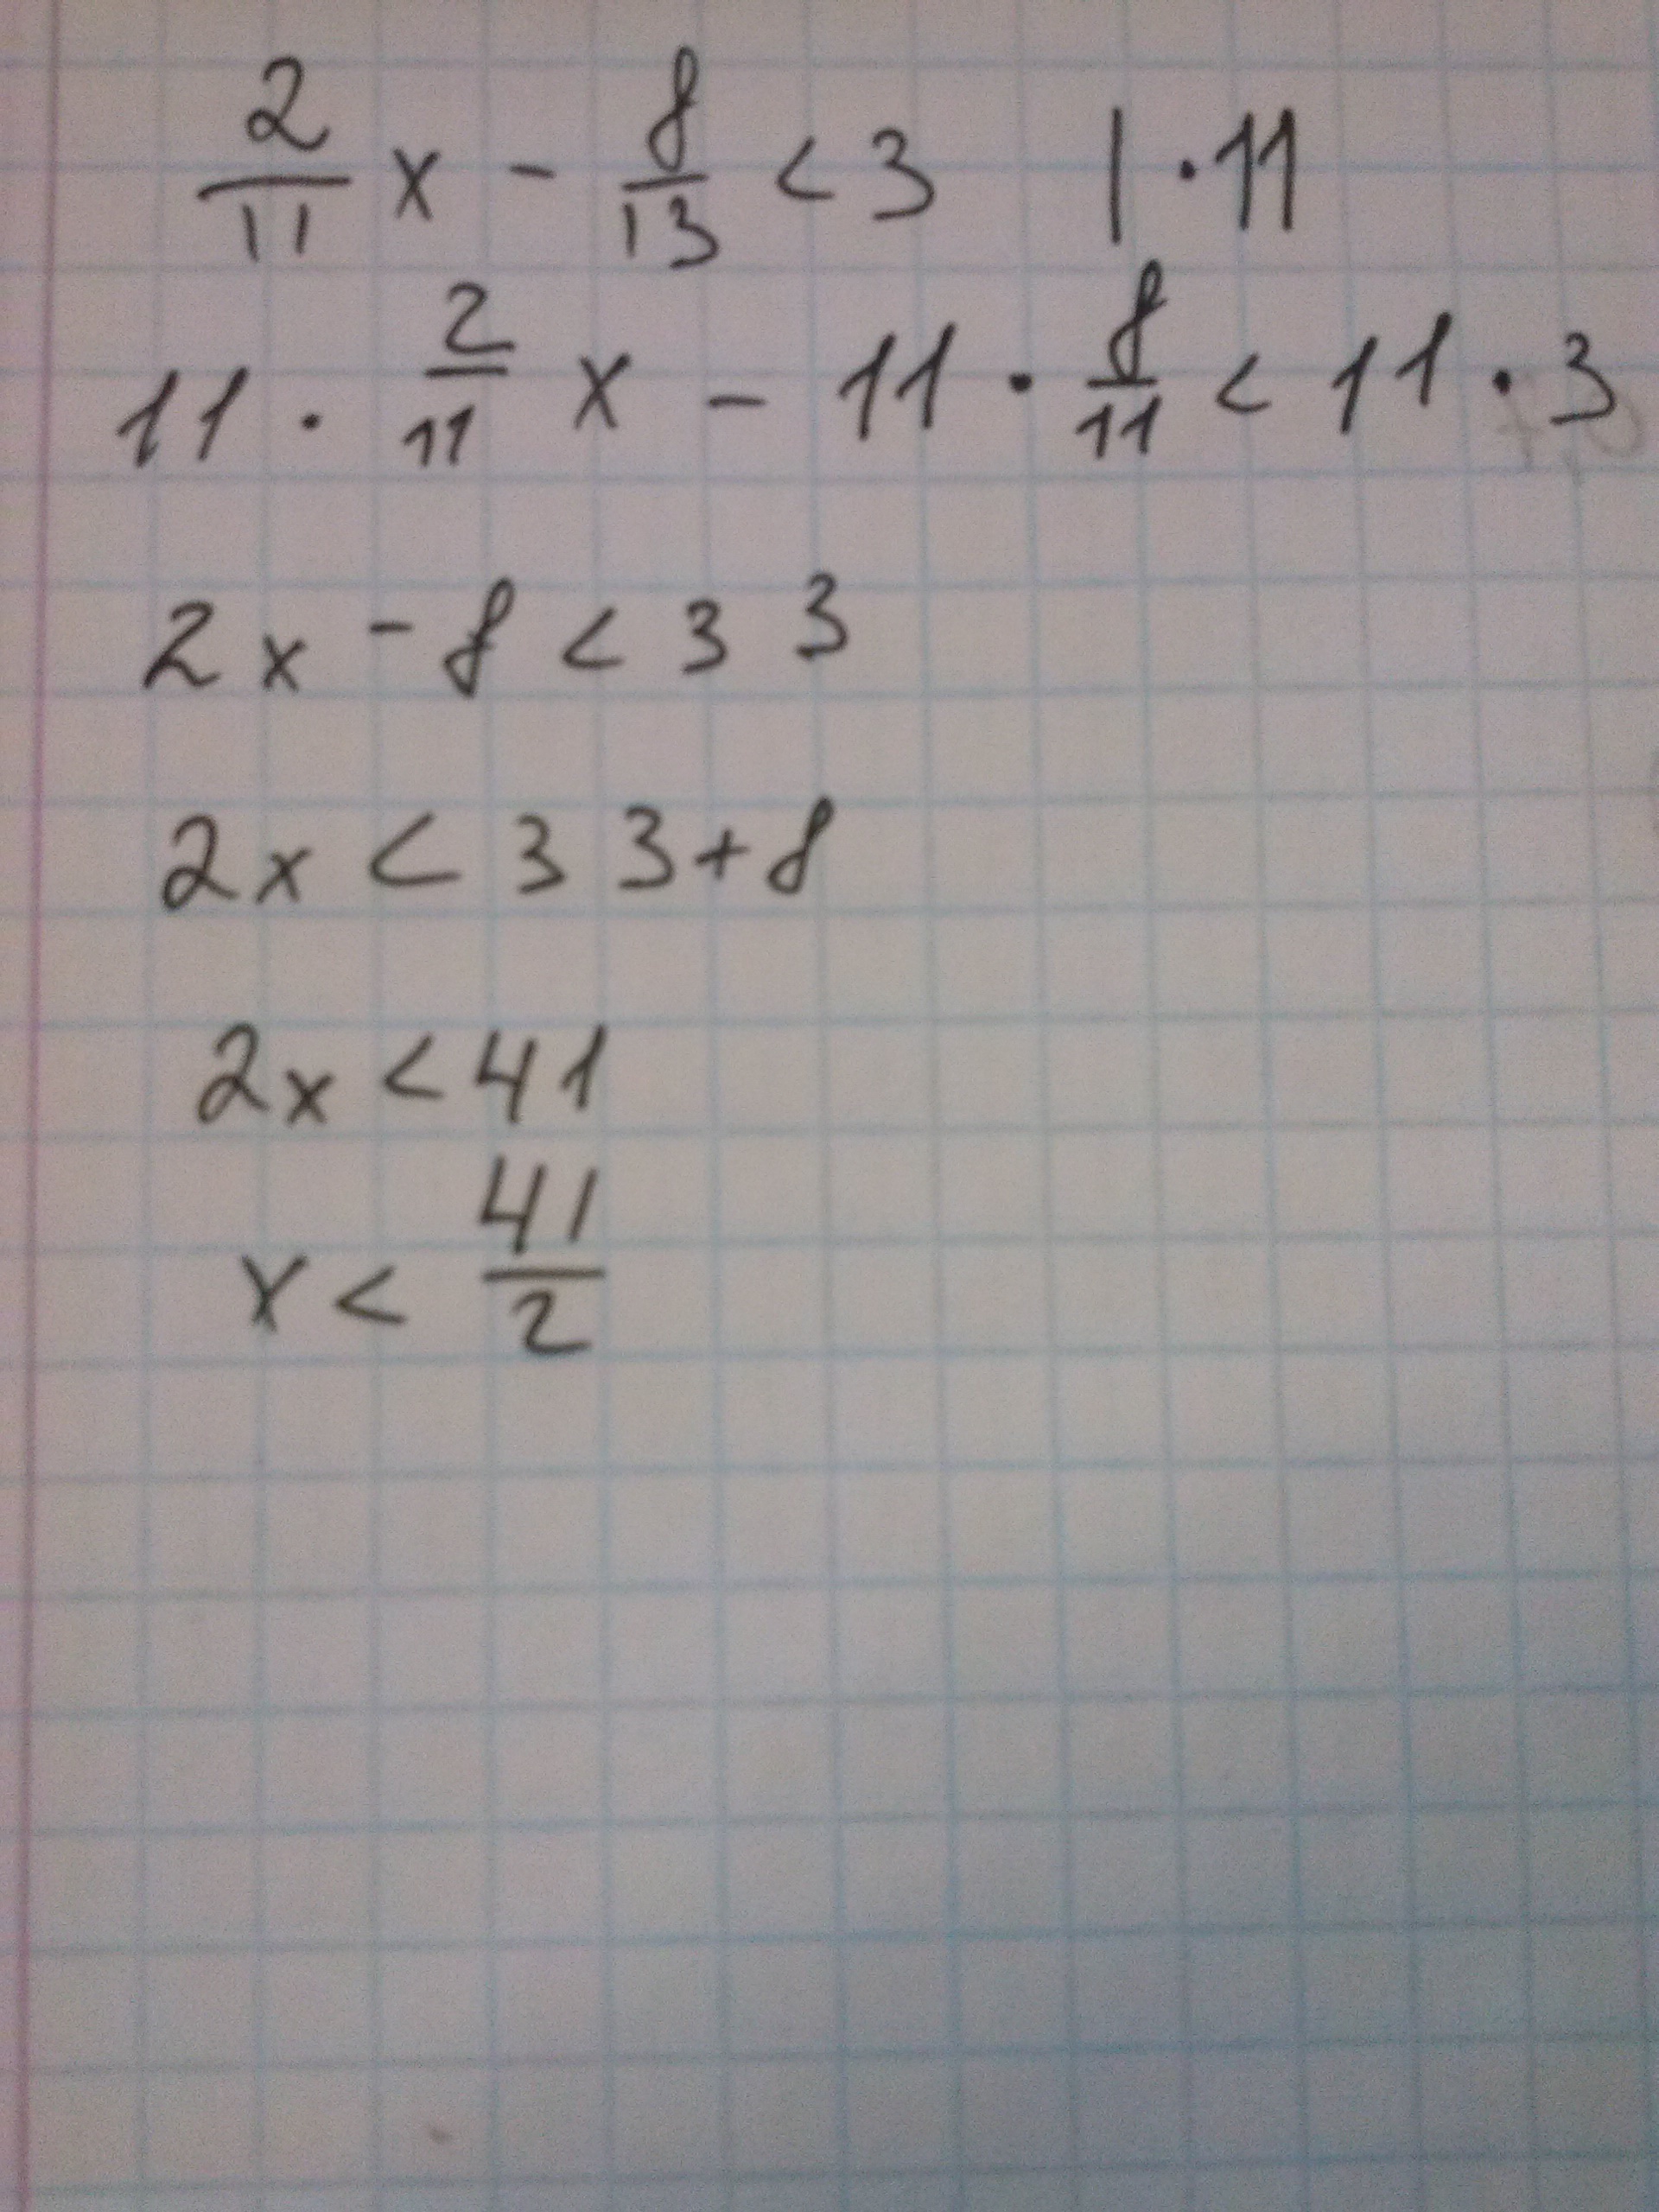 2/11 x - 8/13 < 3 | · 11
11 · 2/11 x - 11 · 8/11 < 11 · 3
2x - 8 < 33
2x < 33 + 8
2x < 41
x < 41/2